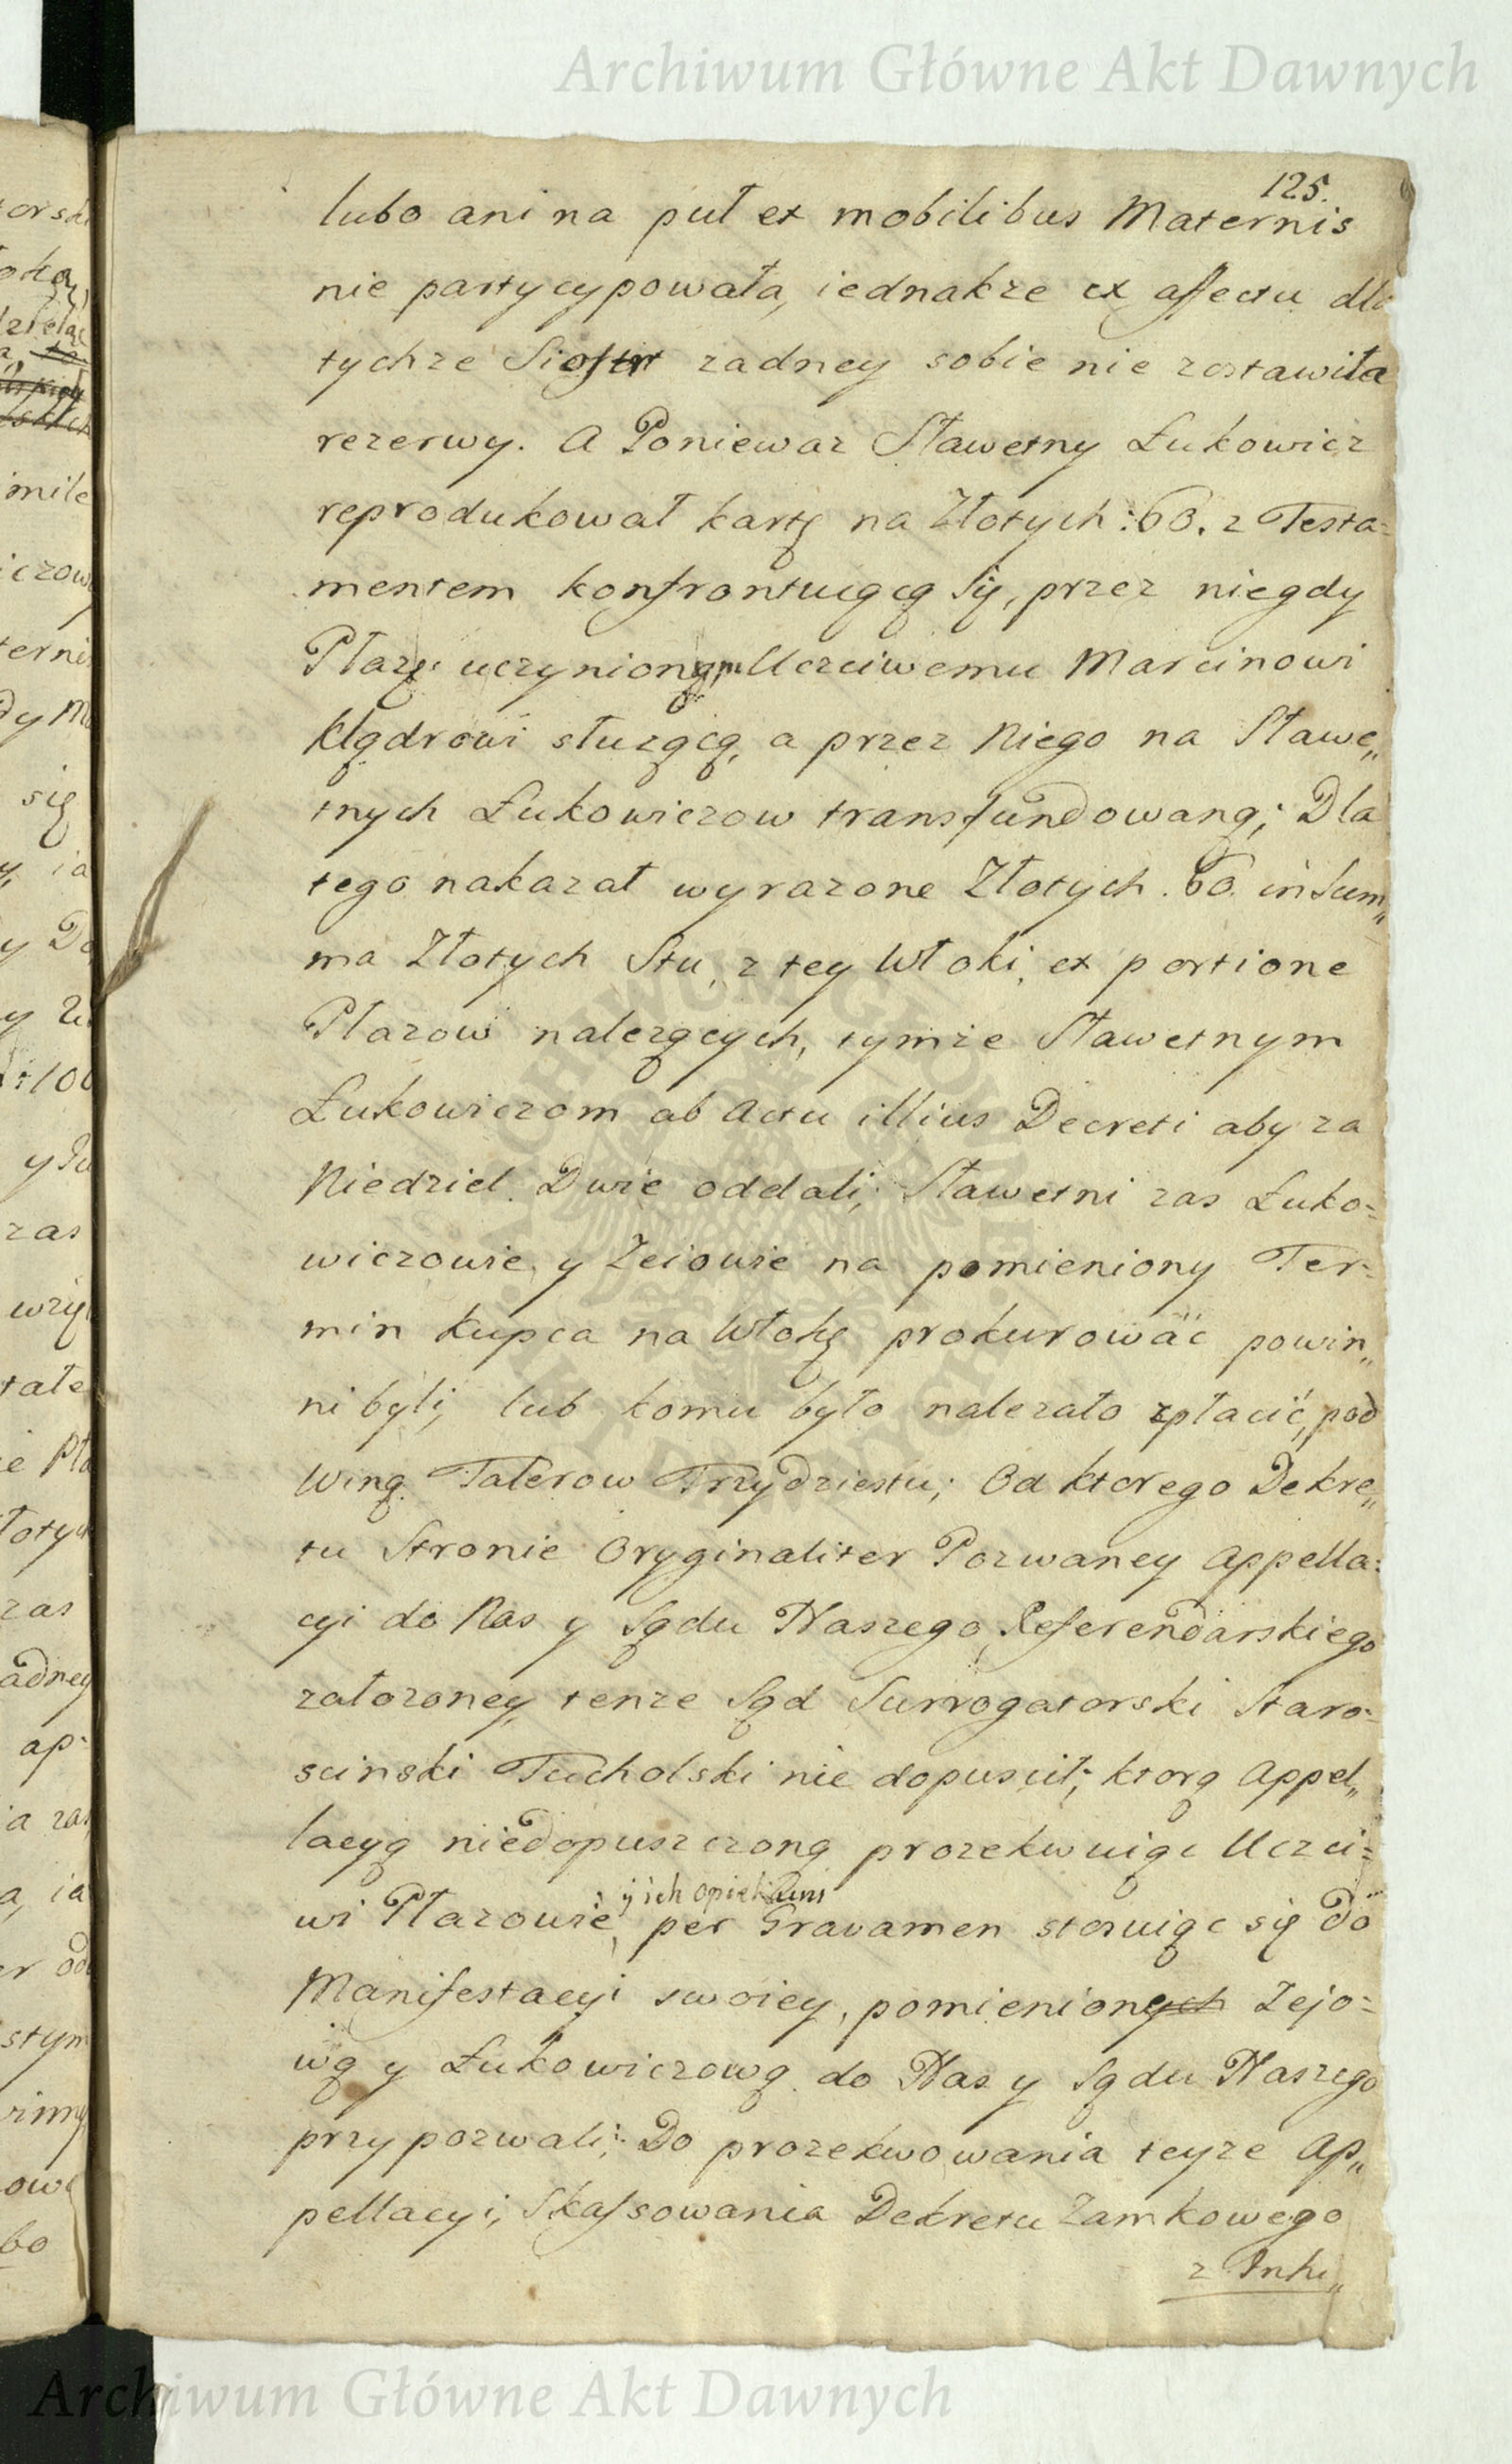 Archiwum Główne Akt Dawnych
125.
lubo ani na puł ex mobilibus Maternis
nie partycypowała, iednakze ex affectu dla
tychze Siostr zadney sobie nie zostawiła
rezerwy. A Poniewaz Sławetny Łukowicz
reprodukował kartę na Złotych: 60. z Testa=
mentem konfrontuiącą się, przez niegdy
Płazę uczynioną, Uczciwemu Marcinowi
Klądrowi służącą, a przez Niego na Sławe„
tnych Łukowiczow transfundowaną; Dla
tego nakazał wyrazone Złotych. 60. in Sum„
ma Złotych Stu, z tey Włoki, ex portione
Płazow nalezących, tymze Sławetnym
Łukowiczom ab Actu illius Decreti aby za
Niedziel Dwie oddali; Sławetni zas Łuko=
wiczowie y Zeiowie na pomieniony Ter=
min kupca na Włokę prokurować powin„
ni byli, lub komu było nalezało zpłacić, pod
Winą Talerow Trzydziestu; Od ktorego Dekre„
tu Stronie Oryginaliter Pozwaney Appella=
cyi do Nas y Sądu Naszego Referendarskiego
załozoney, tenze Sąd Surrogatorski Staro=
scinski Tucholski nie dopuscił; ktorą Appel„
lacyą niedopuszczoną prozekwuiąc Uczci=
y ich opiekuni
wi Płazowie, per Gravamen stosuiąc się do
Manifestacyi swoiey, pomienionych Zejo=
wą y Łukowiczową do Nas y Sądu Naszego
przypozwali; Do prozekwowania teyze Ap„
pellacyi, Skassowania Dekretu Zamkowego
z Inhi„
Archiwum Główne Akt Dawnych